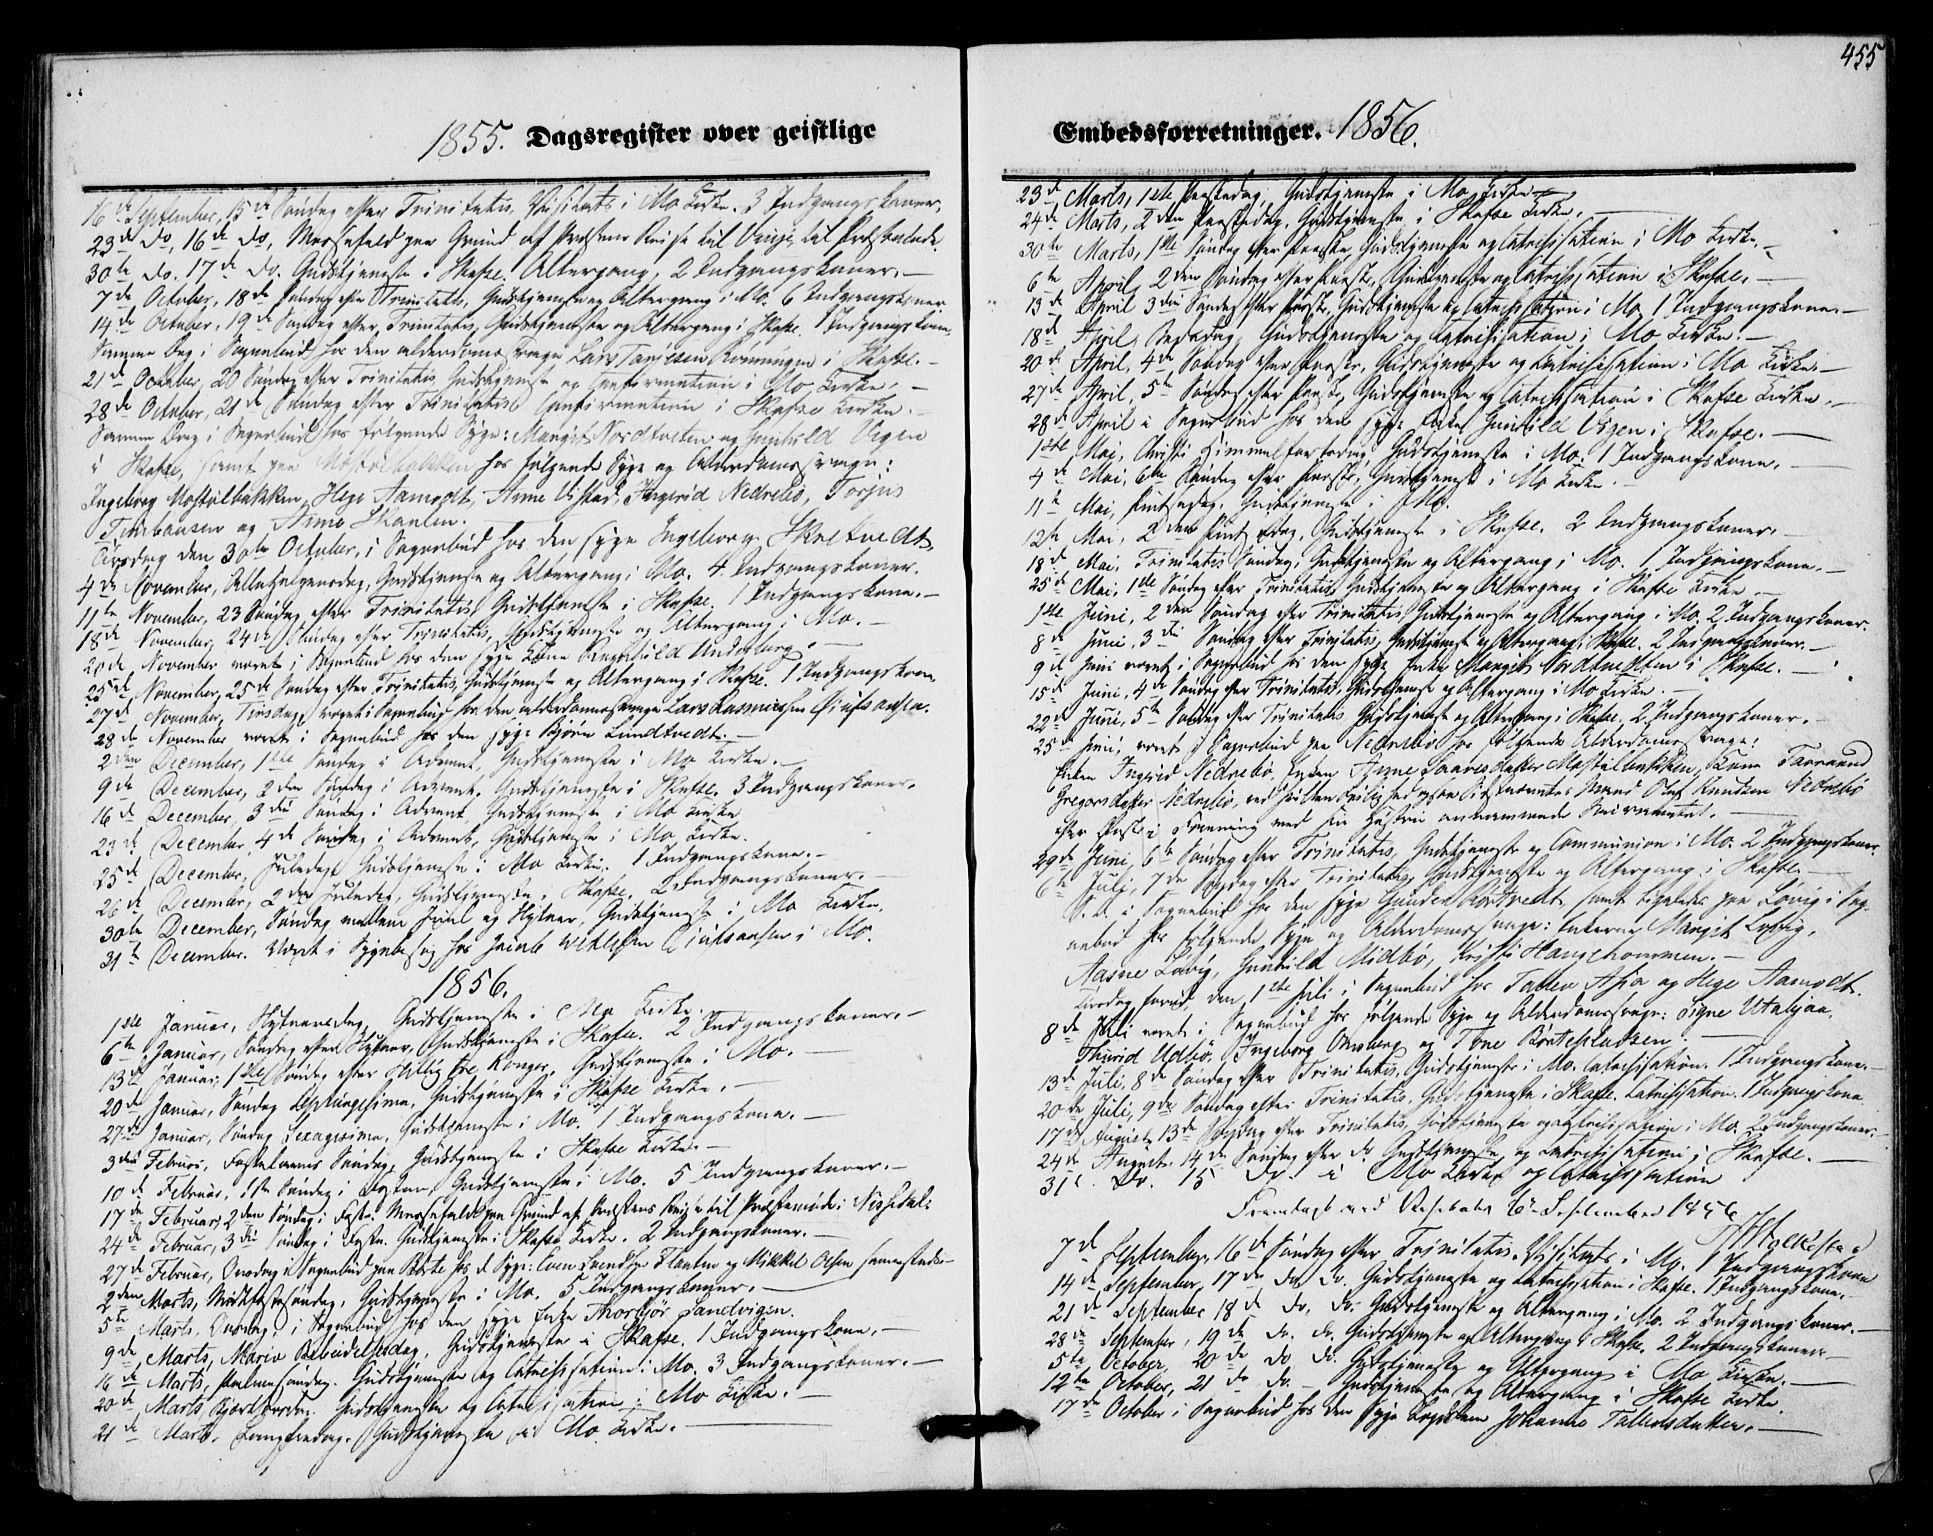 455
1855. Dagsregister over geistlige
16de September, 15de Søndag efter Trinitatis, Visitats i Mo Kirke. 3 Indgangskoner.
23de do, 16de do, Messefald paa Grund af Præstens Reise til Vinje
30te do. 17de do. Gudstjeneste i Skafse. Altergang, 2 Indgangskoner. —
7de October, 18de Søndag efter Trinitatis, Gudstjeneste og Altergang i Mo. 6 Indgangskoner
14de October, 19de Søndag efter Trinitatis, Gudstjeneste og Altergang i Skafse. 1 Indgangskone.
Samme Dag i Sognebud hos den alderdomssvage Lars Rønningen i Skafse. —
21de October, 20 Søndag efter Trinitatis Gudstjeneste og Confirmation i Mo Kirke. —
28de October, 21de Søndag efter Trinitatis Confirmation i Skafse Kirke. —
Samme Dag i Sognebud hos følgende Syge: Margit Nordtveten og Gunhild Vegen
i Skafse, samt paa Mostølbakken hos følgende Syge og Alderdomssvage:
Ingeborg Mostølbakken, Hege Aamodt, Anne Ingerid Nedrebø, Torjus
og Anne
Tirsdag den 30te October, i Sognebud hos den syge Ingeborg Skretvedt.
4de November, Allehelgensdag, Gudstjeneste og Altergang i Mo. 4 Indgangskoner.
11te November, 23 Søndag efter Trinitatis Gudstjeneste i Skafse. 1 Indgangskone. —
18de November, 24de Søndag efter Trinitatis, Gudstjeneste og Altergang i Mo. —
20de November været i Sognebud hos den syge Kone Gunhild Underberg. —
25de November, 25de Søndag efter Trinitatis, Gudstjeneste og Altergang i Skafse. 1 Indgangskone
27de November, Tirsdag, været i Sognebud hos den alderdomssvage Lars Rasmussen
28de November været i Sognebud hos den syge Bjørn Lundtvedt. —
2den December, 1ste Søndag i Advent, Gudstjeneste i Mo Kirke. —
9de December, 2den Søndag i Advent, Gudstjeneste i Skafse. 3 Indgangskoner.
16de December, 3die Søndag i Advent, Gudstjeneste i Mo Kirke
23de December, 4de Søndag i Advent, Gudstjeneste i Mo Kirke.
25de December, Juledag, Gudstjeneste i Mo Kirke. 1 Indgangskone. —
26de December, 2den Juledag, Gudstjeneste i Skafse, 2 Indgangskoner. —
30te December, Søndag mellem Juul og Nytaar, Gudstjeneste i Mo Kirke.
31te December. Været i Sygebesøg hos Jacob i Mo.
1856.
1ste Januar, Nytaarsdag, Gudstjeneste i Mo Kirke.
6te Januar, Søndag efter Nytaar, Gudstjeneste i Skafse. 2 Indgangskoner. —
13de Januar, 1ste Søndag efter Hellig tre Konger, Gudstjeneste i Mo. —
20de Januar, Søndag Septuagesima, Gudstjeneste i Skafse Kirke. —
27de Januar, Søndag Sexagesima, Gudstjeneste i Mo. 1 Indgangskone. —
3die Februar, Fastelavns Søndag, Gudstjeneste i Skafse Kirke. —
10de Februar, 1ste Søndag i Fasten, Gudstjeneste i Mo. 5 Indgangskoner. —
17de Februar, 2den Søndag i Faste. Messefald paa Grund af Præstens Reise til Præstemøde i Nissedal.
24de Februar, 3die Søndag i Faste. Gudstjeneste i Skafse Kirke. 2 Indgangskoner. —
27de Februar, Onsdag i Sognebud paa Børte hos de Syge: Even Evensen og Mikkel Olsen sammesteds —
2den Marts, Midfastesøndag, Gudstjeneste i Mo. 5 Indgangskoner. —
5te Marts, Onsdag, i Sognebud hos den syge Enke Thorbjør Sandvigen.
9de Marts, Mariæ Bebudelsesdag, Gudstjeneste i Skafse. 1 Indgangskone. —
16de Marts, Palmesøndag. Gudstjeneste og Catechisation i Mo, 3 Indgangskoner. —
20de Marts, Skjærtorsdag. Gudstjeneste og Catechisation i Mo Kirke. —
21de Marts. Langfredag. Gudstjeneste i Mo Kirke.
Embedsforretninger. 1856.
23de Marts, 1ste Paaskedag, Gudstjeneste i Mo Kirke —
24de Marts, 2den Paaskedag, Gudstjeneste i Skafse Kirke.
30te Marts, 1ste Søndag efter Paaske, Gudstjeneste og Catechisation i Mo Kirke. —
6te April, 2den Søndag efter Paaske, Gudstjeneste og Catechisation i Skafse. —
13de April 3die Søndag efter Paaske, Gudstjeneste og Catechisation i Mo 1 Indgangskone. —
18de April, Bededag, Gudstjeneste og Catechisation i Mo Kirke. —
20de April, 4de Søndag efter Paaske, Gudstjeneste og Catechisation i Mo Kirke. —
27de April, 5te Søndag efter Paaske, Gudstjeneste og Catechisation i Skafse Kirke. —
28de April i Sognebud hos den syge Enke Gunhild Vegen i Skafse. —
1ste Mai, Christi Himmelfartsdag, Gudstjeneste i Mo. 1 Indgangskone. —
4de Mai, 6te Søndag efter Paaske, Gudstjeneste i Mo Kirke. —
11te Mai, Pintsedag, Gudstjeneste i Mo.
12te Mai, 2den Pintsedag, Gudstjeneste i Skafse. 2 Indgangskoner. —
18de Mai, Trinitatis Søndag, Gudstjeneste og Altergang i Mo. 1 Indgangskone. —
25de Mai, 1ste Søndag efter Trinitatis, Gudstjeneste og Altergang i Skafse Kirke —
1ste Juni, 2den Søndag efter Trinitatis Gudstjeneste og Altergang i Mo. 2 Indgangskoner.
8de Juni, 3die Søndag efter Trinitatis, Gudstjeneste og Altergang i Skafse. 2 Indgangskoner. —
9de Juni været i Sognebud hos den syge Enke Margit Nordtveten i Skafse. —
15de Juni, 4de Søndag efter Trinitatis, Gudstjeneste og Altergang i Mo Kirke. —
22de Juni, 5te Søndag efter Trinitatis Gudstjeneste og Altergang i Skafse. 2 Indgangskoner. —
25de Juni, været i Sognebud paa Nedrebø hos følgende Alderdomssvage:
Enken Ingerid Nedrebø, Enken Anne Mostølbakken, Kone
Gregersdatter Nedrebø, ved hvilken Leilighed ogsaa Sidstnævntes Mand Oluf Knudsen Nedrebø
efter Paa i Forening med sin Hustru annammede Sacramentet. —
29de Juni, 6te Søndag efter Trinitatis, Gudstjeneste og Communion i Mo. 2 Indgangskoner.
6te Juli, 7de Søndag efter Trinitatis, Gudstjeneste og Altergang i Skafse. —
S. D. i Sognebud hos den syge Gunder samt ligeledes paa Løvig i Sog-
nebud hos følgende Syge og Alderdomssvage: Enkerne Margit Løvig,
Aasne Løvig, Gunhild Midbø, Kristi Haugehommen. —
Tirsdag forud, den 1ste Juli i Sognebud hos og Hege Aamodt.
8de Juli været i Sognebud hos følgende Syge og Alderdomssvage: Signe Utabjaa,
Thurid Udbø, Ingeborg Omberg og Tone Børtepladsen. —
13de Juli, 8de Søndag efter Trinitatis, Gudstjeneste i Mo. Catechisation. 1 Indgangskone. —
20de Juli, 9de Søndag efter Trinitatis, Gudstjeneste i Skafse. Catechisation. 1 Indgangskone
17de August, 13de Søndag efter Trinitatis, Gudstjeneste og Catechisation i Mo. 2 Indgangskoner. —
24de August. 14de Søndag efter do. Gudstjeneste og Catechisation i Skafse. —
31te do. 15 do. i Mo Kirke og Catechisation
Fremlagt ved Visitats 6te September 1856
7de September, 16de Søndag efter Trinitatis. Visitats i Mo. 1 Indgangskone
14de September, 17de do. do. Gudstjeneste og Catechisation i Skafse. 1 Indgangskone. —
21de September 18de do. do. Gudstjeneste og Altergang i Mo. 2 Indgangskoner. —
28de September, 19de do. do. Gudstjeneste og Altergang i Skafse. 2 Indgangskoner. —
5te October, 20de do do. Gudstjeneste og Altergang i Mo Kirke. —
12te October, 21de do. do. — Gudstjeneste og Altergang i Skafse Kirke.
17de October i Sognebud hos den syge Johanne Tallevsdatter. —